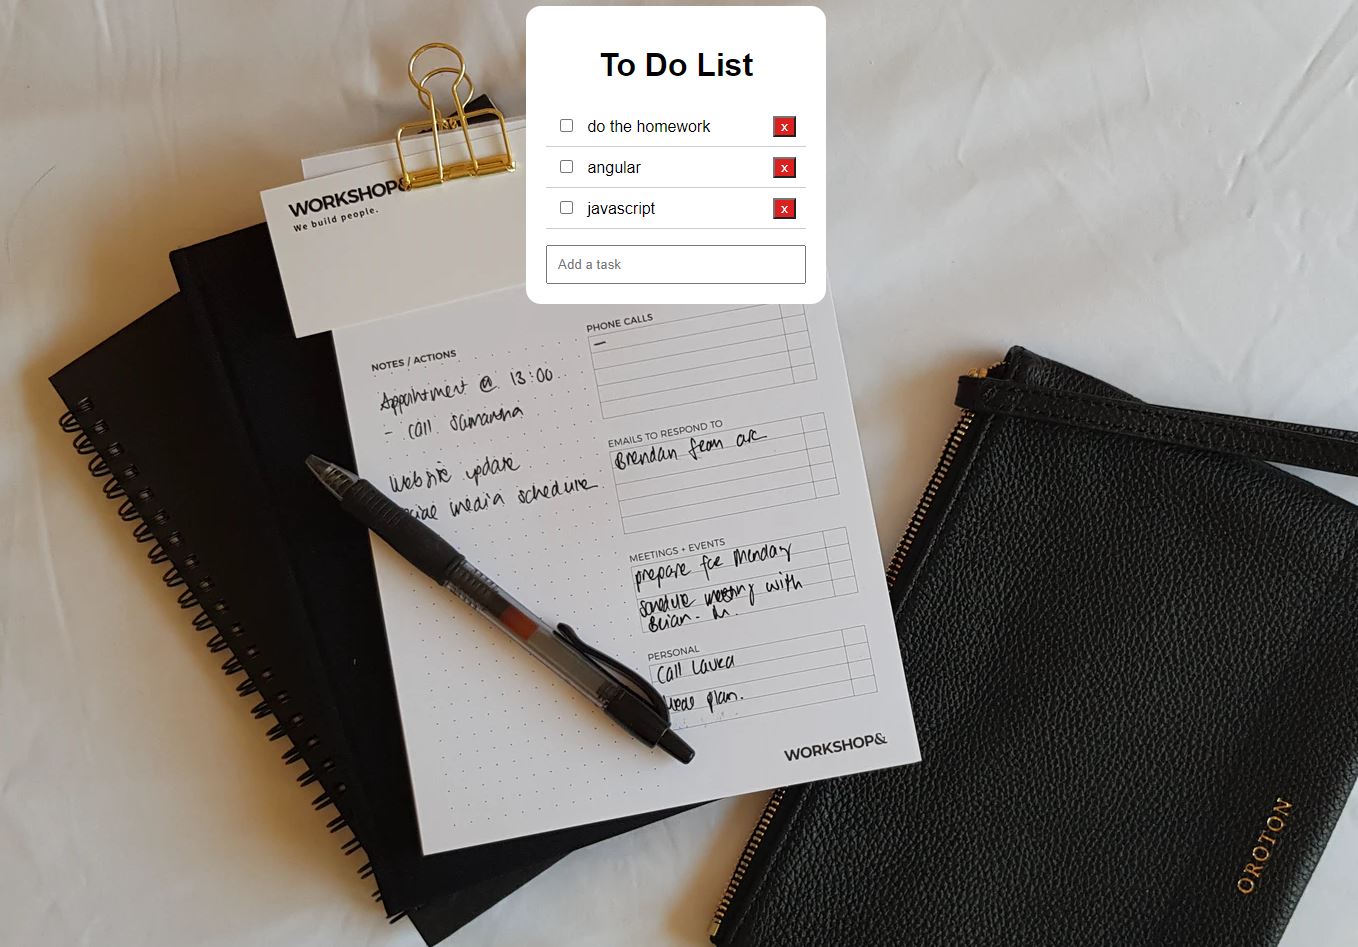 To Do List
do the homework
x
angular
x
javascript
x
Add a task
WORKSHOP&
We build people.
NOTES / ACTIONS
Appointment @ 13:00
- call Samantha
Website update
media schedule
PHONE CALLS
—
EMAILS TO RESPOND TO
Brendan from arc
MEETINGS + EVENTS
prepare for Monday
schedule meeting with
Brian. M.
PERSONAL
Call Laura
plan.
WORKSHOP&
OROTON